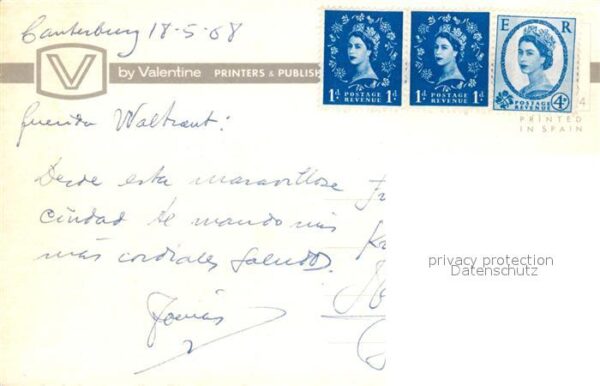 Canterbury 18-5-68
V
by Valentine PRINTERS & PUBLIS
1d POSTAGE REVENUE 1d
1d POSTAGE REVENUE 1d
E R
POSTAGE REVENUE 4d
4
PRINTED
IN SPAIN
Querida Waltraut:
Desde esta maravillosa
ciudad te mando mis
más cordiales saludos.
Tomás
privacy protection
Datenschutz